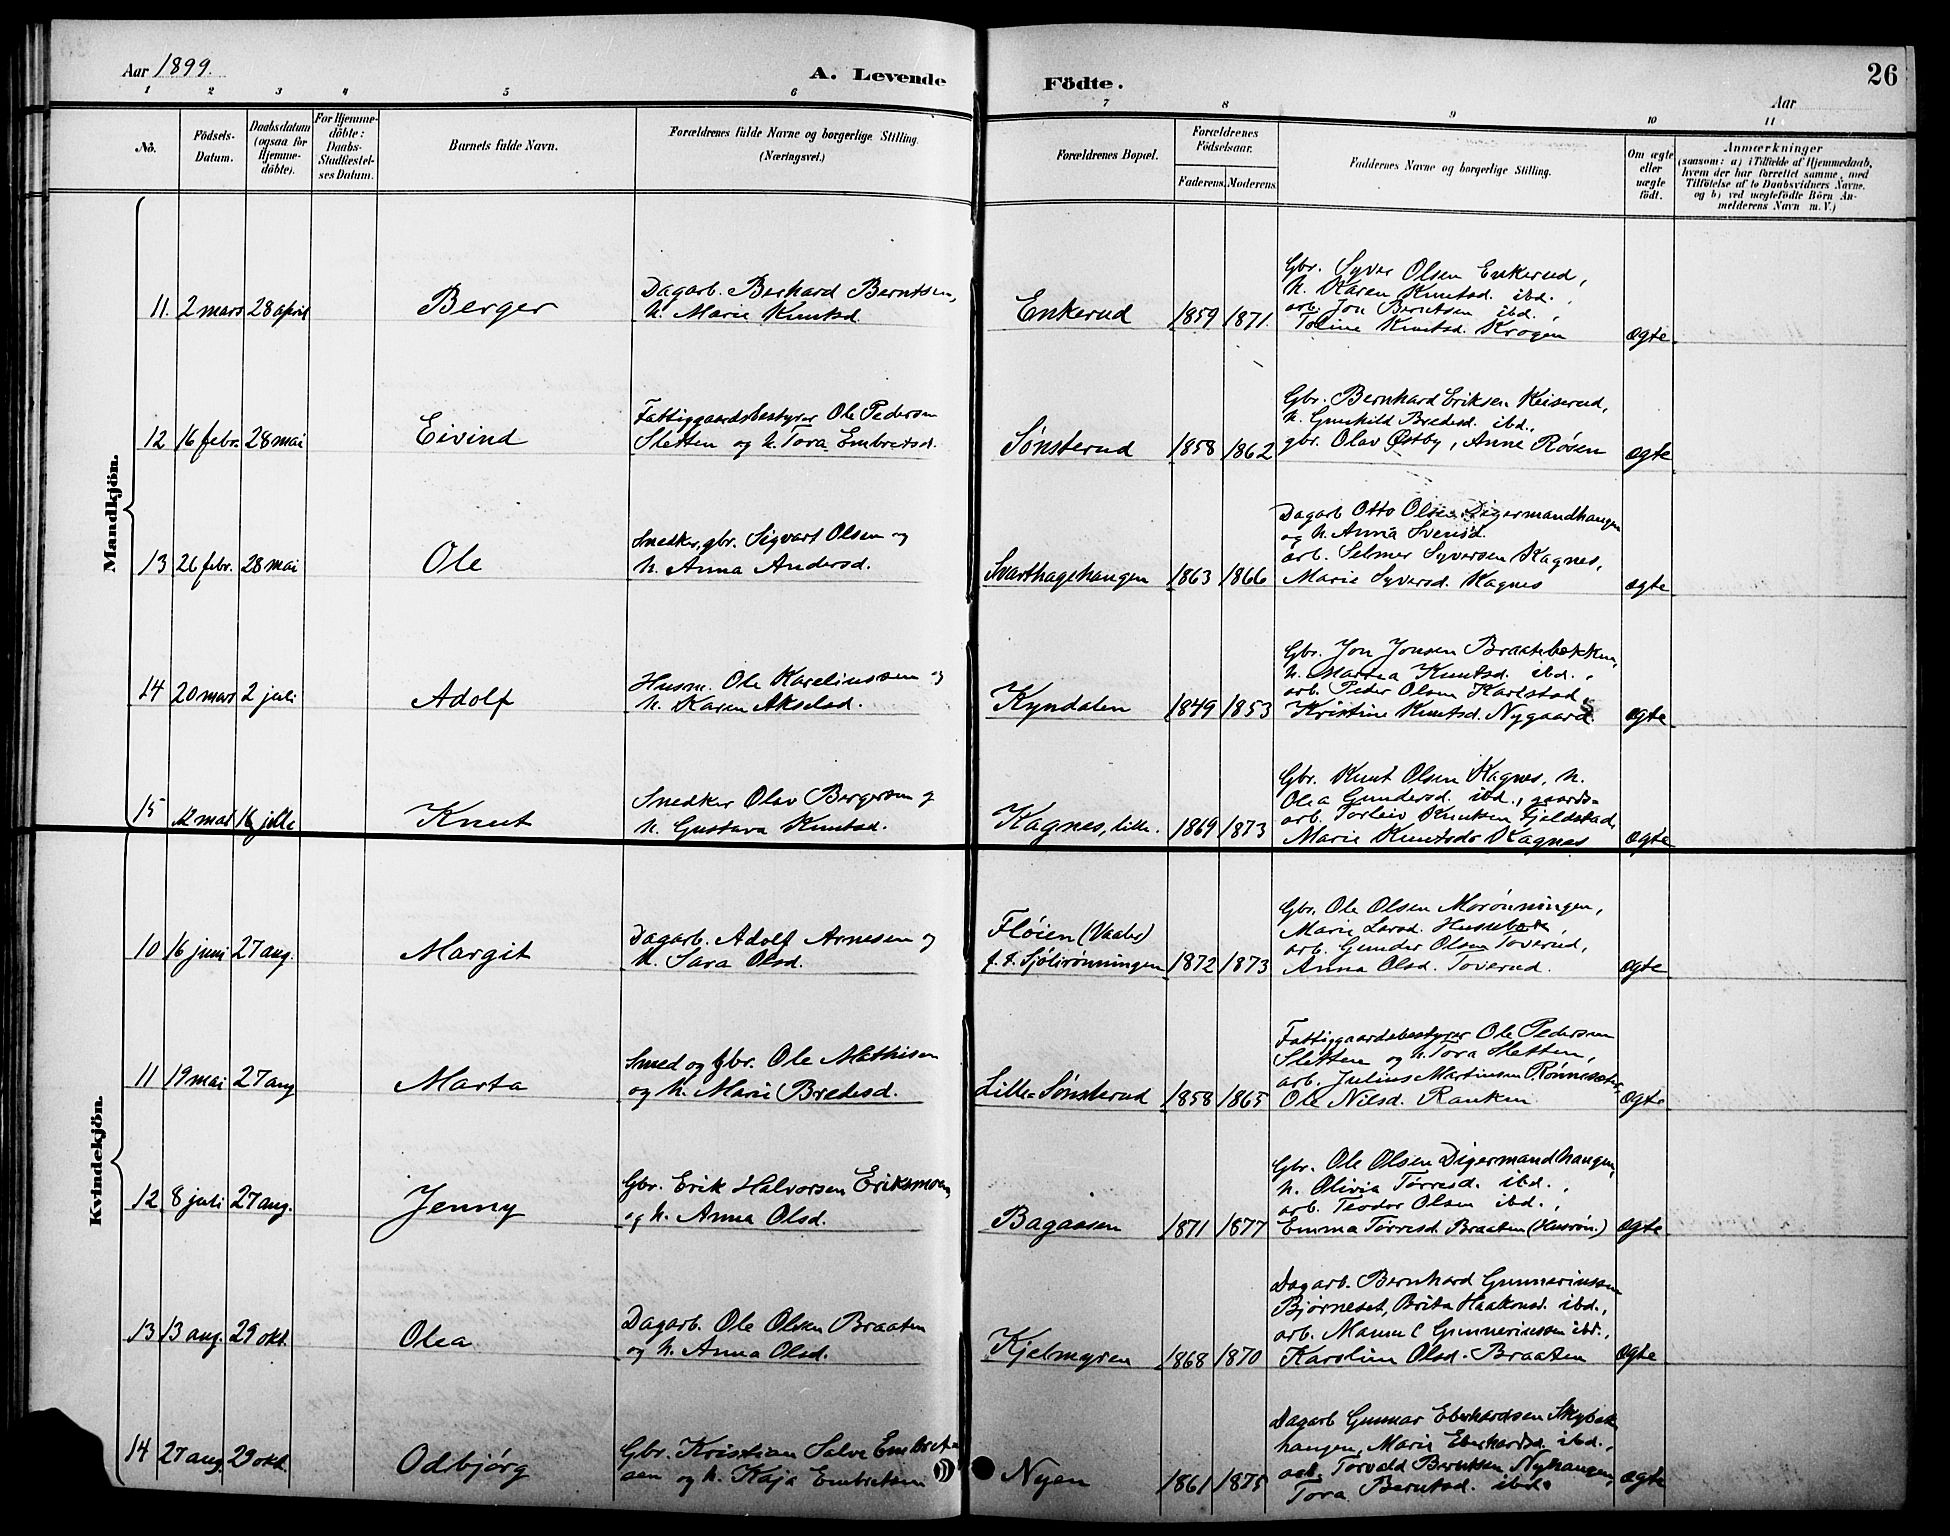 Aar 1899.
A. Levende Födte.
26
Aar
1 2 3 4 5 6 7 8 9 10 11
No.
Födsels-
Datum.
Daabsdatum
(ogsaa for
Hjemme-
döbte).
For Hjemme-
döbte:
Daabs-
Stadfæstel-
ses Datum.
Barnets fulde Navn.
Forældrenes fulde Navne og borgerlige Stilling.
(Næringsvei.)
Forældrenes Bopæl.
Forældrenes
Födselsaar.
Faderens. Moderens.
Faddernes Navne og borgerlige Stilling.
Om ægte
eller
uægte
födt.
Anmærkninger
(saasom: a) i Tilfælde af Hjemmedaab,
hvem der har forrettet samme, med
Tilföielse af to Daabsvidners Navne.
og b) ved uægtefödte Börn An-
melderens Navn m. V.)
Mandkjön.
11. 2 mars 28 april Berger
Dagarb. Berhard Berntsen,
h. Marie Knutsd.
Enkerud 1859 1871.
Gbr. Syver Olsen Enkerud,
h. Karen Knutsd. ibd.,
arb. Jon Berntsen ibd.,
Toline Knutsd. Krogen
ægte
12 16 febr. 28 mai Eivind
Fattiggaardsbestyrer Ole Pedersen
Sletten og h. Tora Embretsd.
Sønsterud 1858 1862
Gbr. Bernhard Eriksen Keiserud,
h. Gunhild Bredesd. ibd.,
gbr. Olav Østby, Anne Røsen
ægte
13 26 febr. 28 mai Ole
Snedker, gbr. Sigvart Olsen og
h. Anna Andersd.
Svarthagehaugen 1863 1866
Dagarb Otto Olsen Digermandhaugen
og h. Anna Svensd.
arb. Selmer Syversen Kagnes,
Marie Syversd. Kagnes
ægte
14 20 mars 2 juli Adolf
Husm. Ole Kareliussen og
h. Karen Akselsd.
Kyndalen 1849 1853
Gbr. Jon Jonsen Braatebækken,
h. Martea Knutsd. ibd.,
arb. Peder Olsen Karlstad,
Kristine Knutsd. Nygaard
ægte
15 12 mai 16 julle Knut
Snedker Olav Bergersen og
h. Gustava Knutsd.
Kagnes, lille. 1869 1873
Gbr. Knut Olsen Kagnes, h.
Olea Gundersd. ibd., gaards-
arb. Torleiv Knutsen Fjeldstad,
Marie Knutsdr Kagnes
ægte
Kvindekjön.
10 16 juni 27 aug. Margit
Dagarb. Adolf Arnesen og
h. Sara Olsd.
Fløien (Vaaler)
f. t. Sjølirønningen 1872 1873
Gbr. Ole Olsen Morønningen,
Marie Larsd. Husebøe,
arb. Gunder Olsen Toverud,
Anna Olsd. Toverud.
ægte
11 19 mai 27 aug Marta
Smed og gbr. Ole Mathisen
og h. Marie Bredesd.
Lille-Sønsterud 1858 1865
Fattiggaardsbestyrer Ole Pedersen
Sletten og h. Tora Sletten,
arb. Julius Martinsen Rønnesæter,
Ole Nilsd. Ranken
ægte
12 8 juli 27 aug. Jenny
Gbr. Erik Halvorsen Eriksmoen,
og h. Anna Olsd.
Bagaasen 1871 1877
Gbr. Ole Olsen Digermandhaugen,
h. Olivia Tørresd. ibd.,
arb. Teodor Olsen ibd.,
Emma Tørresd. Braaten (Husrøn.)
ægte
13 13 aug. 29 okt. Olea
Dagarb. Ole Olsen Braaten
og h. Anna Olsd.
Kjelmyren 1868 1870
Dagarb. Bernhard Gunneriussen
Bjørneset, Brita Haakonsd. ibd.,
arb. Manuel Gunneriussen ibd.,
Karoline Olsd. Braaten
ægte
14 27 aug. 29 okt. Odbjørg
Gbr. Kristian Salve Embret-
sen og h. Kaja Embretsen
Nyen 1861 1875
Dagarb Gunnar Eberhardsen Skybak
haugen, Marie Eberhardsd. ibd.,
arb. Torvald Berntsen Nyhaugen,
Tora Berntsd. ibd.
ægte